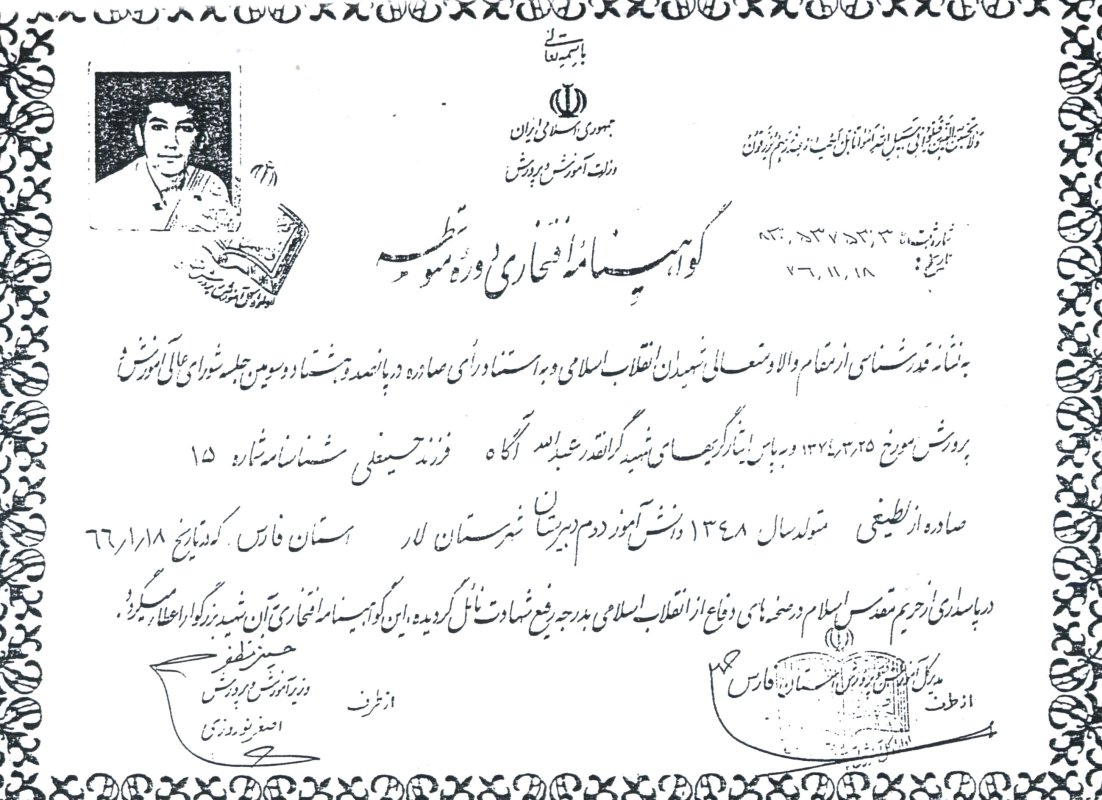 باسمه تعالی
جمهوری اسلامی ایران
وزارت آموزش و پرورش
ولا تحسبن الذین قتلوا فی سبیل الله امواتا بل احیاء عند ربهم یرزقون
شماره ثبت:
تاریخ: ۷۶٫۱۱٫۱۸
گواهینامه افتخاری دوره متوسطه
به نشانه قدرشناسی از مقام والا و متعالی شهیدان انقلاب اسلامی و به استناد رأی صادره در پانصد و هشتاد و سومین جلسه شورای عالی آموزش و
پرورش مورخ ۱۳۷۴٫۳٫۲۵ و به پاس ایثارگریهای شهید گرانقدر عبدالله آگاه فرزند حسینعلی شناسنامه شماره ۱۵
صادره از لطیفی متولد سال ۱۳۴۸ دانش آموز دوم دبیرستان شهرستان لار استان فارس که در تاریخ ۶۶٫۱٫۱۸
در پاسداری از حریم مقدس اسلام در صحنه های دفاع از انقلاب اسلامی بدرجه رفیع شهادت نائل گردیده، این گواهینامه افتخاری به آن شهید بزرگوار اعطا میگردد.
مدیرکل آموزش و پرورش استان فارس
از طرف
حسین مظفر
وزیر آموزش و پرورش
از طرف
اصغر نوروزی